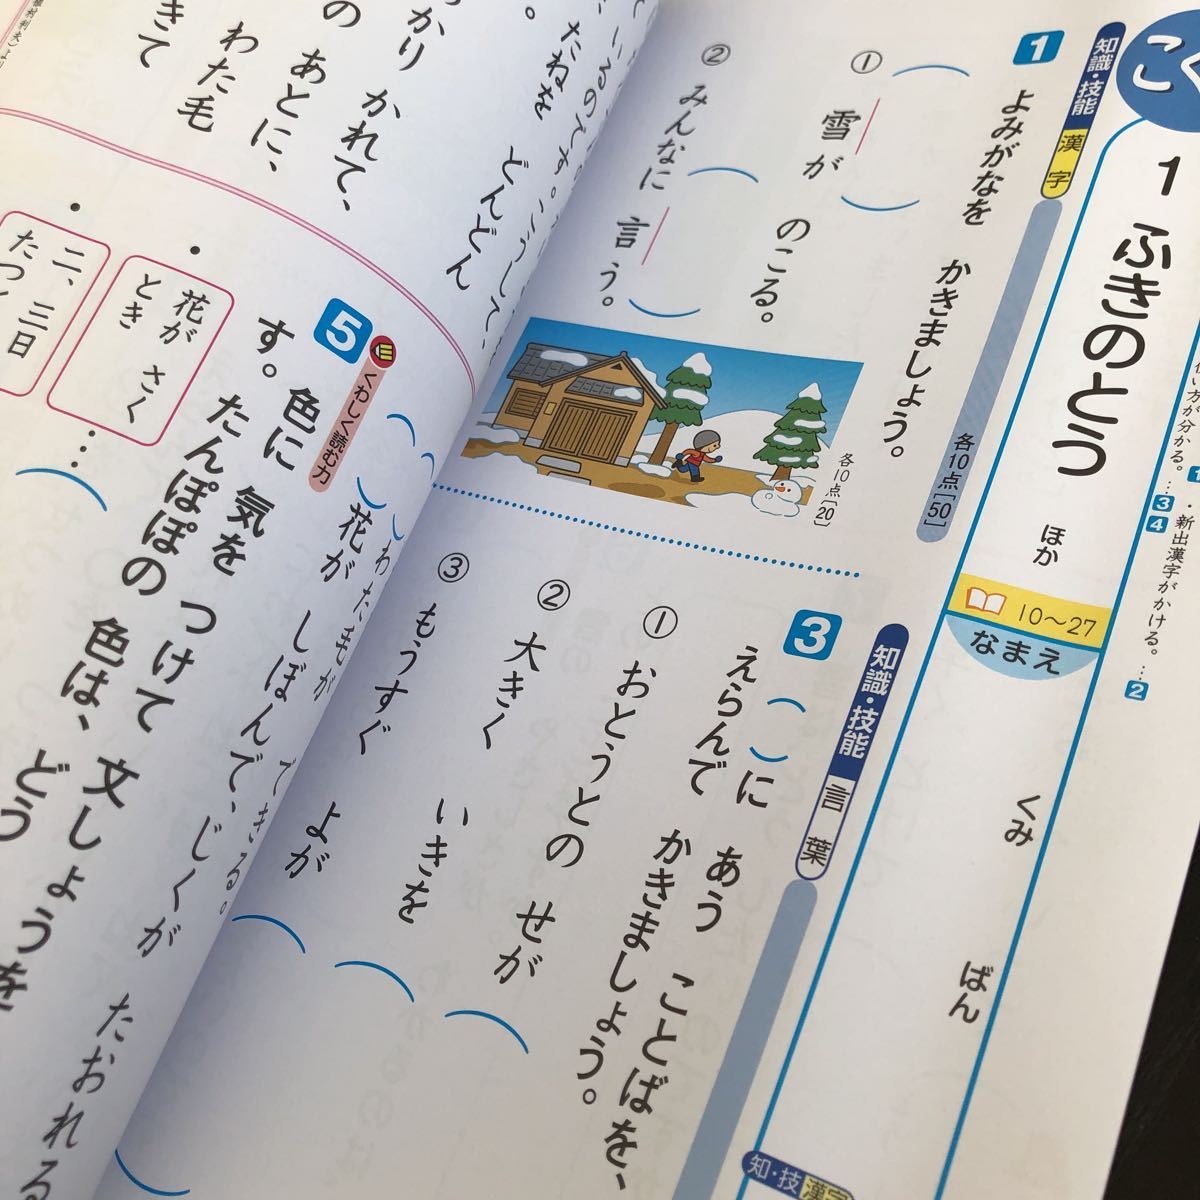 こく
1 ふきのとう ほか
10〜27
なまえ
くみ
ばん
使い方が分かる。…3 4
・新出漢字がかける。…2
1
知識・技能 漢字
よみがなを かきましょう。
各10点〔50〕
① 雪が のこる。
② みんなに 言う。
各10点〔20〕
3
知識・技能 言葉
( )に あう ことばを、
えらんで かきましょう。
① おとうとの せが
② 大きく いきを
③ もうすぐ よが
知・技 漢字
たねを どんどん
かれて、
の あとに、
わた毛
きて
5
くわしく読む力
色に 気を つけて 文しょうを
す。 たんぽぽの 色は、 どう
花が さく とき
二、三日
…
わた毛が できる。
花が しぼんで、じくが たおれる